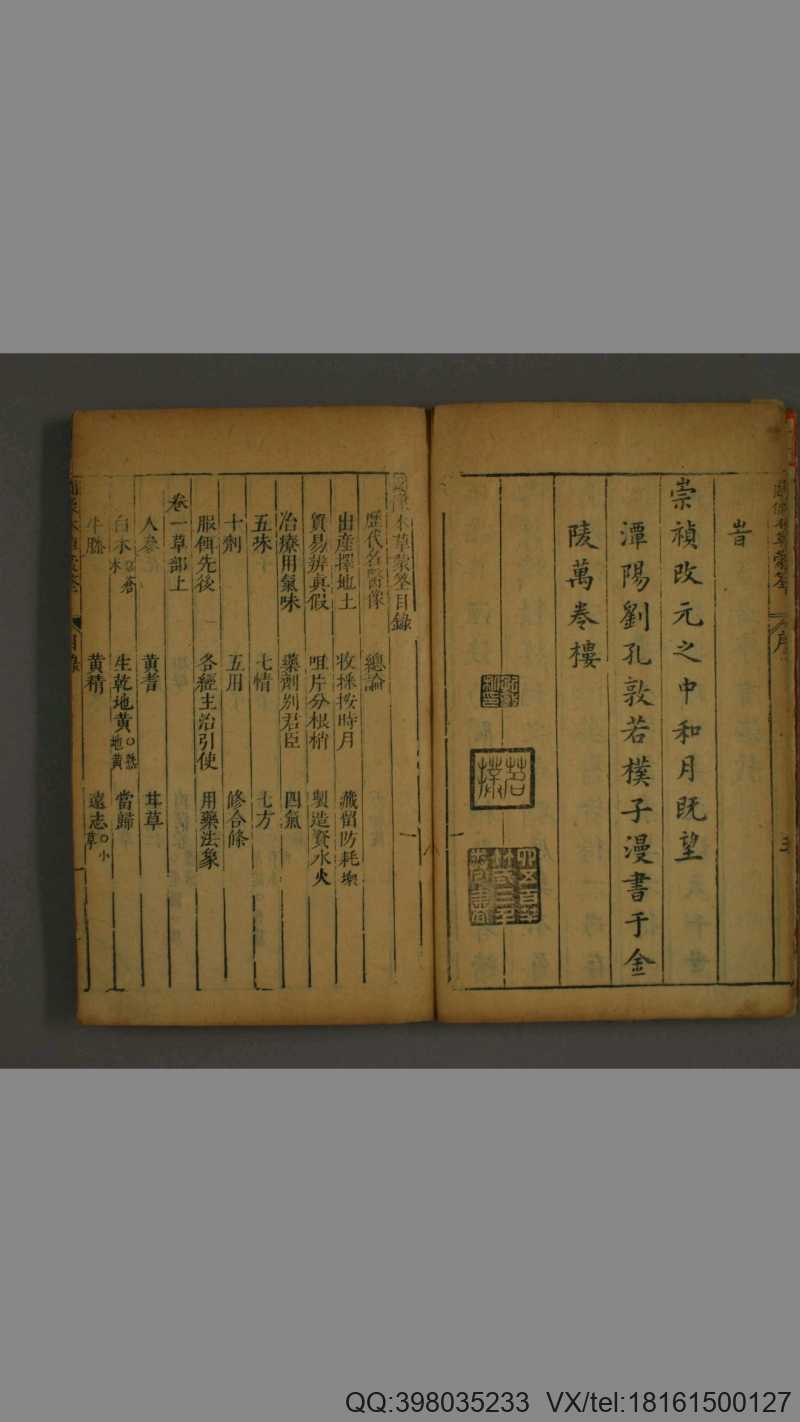 旹
崇禎改元之中和月旣望
潭陽劉孔敦若樸子漫書于金
陵萬卷樓
若樸
本草蒙筌目錄
歷代名醫像 總論
出產擇地土 收採按時月 藏留防耗壞
貿易辨眞假 咀片分根梢 製造資水火
治療用氣味 藥劑別君臣 四氣
五味 七情 七方
十劑 五用 修合條
服餌先後 各經主治引使 用藥法象
卷一草部上
人參 黃耆 甘草
白朮 蒼朮 生乾地黃○熟地黃 當歸
牛膝 黃精 遠志○小草
QQ:398035233 VX/tel:18161500127